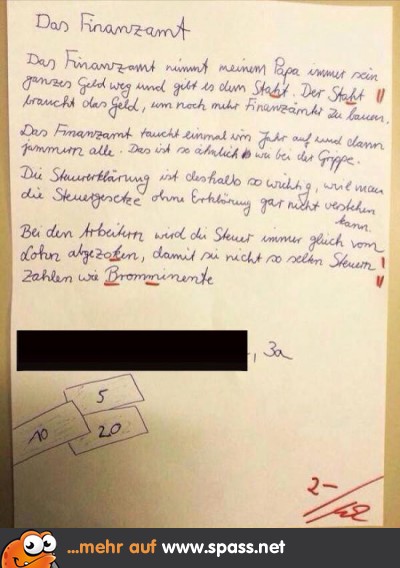 Das Finanzamt
Das Finanzamt nimmt meinem Papa immer sein
ganzes Geld weg und gibt es dem Staht. Der Staht
braucht das Geld, um noch mehr Finanzämter zu bauen.
Das Finanzamt taucht einmal im Jahr auf und dann
jammern alle. Das ist so ähnlich wie bei der Grippe.
Die Steuererklärung ist deshalb so wichtig, weil man
die Steuergesetze ohne Erklärung gar nicht verstehen
kann.
Bei den Arbeitern wird die Steuer immer gleich vom
Lohn abgezoken, damit sie nicht so selten Steuern
Zahlen wie Bromminente
, 3a
5
10
20
2-
...mehr auf www.spass.net